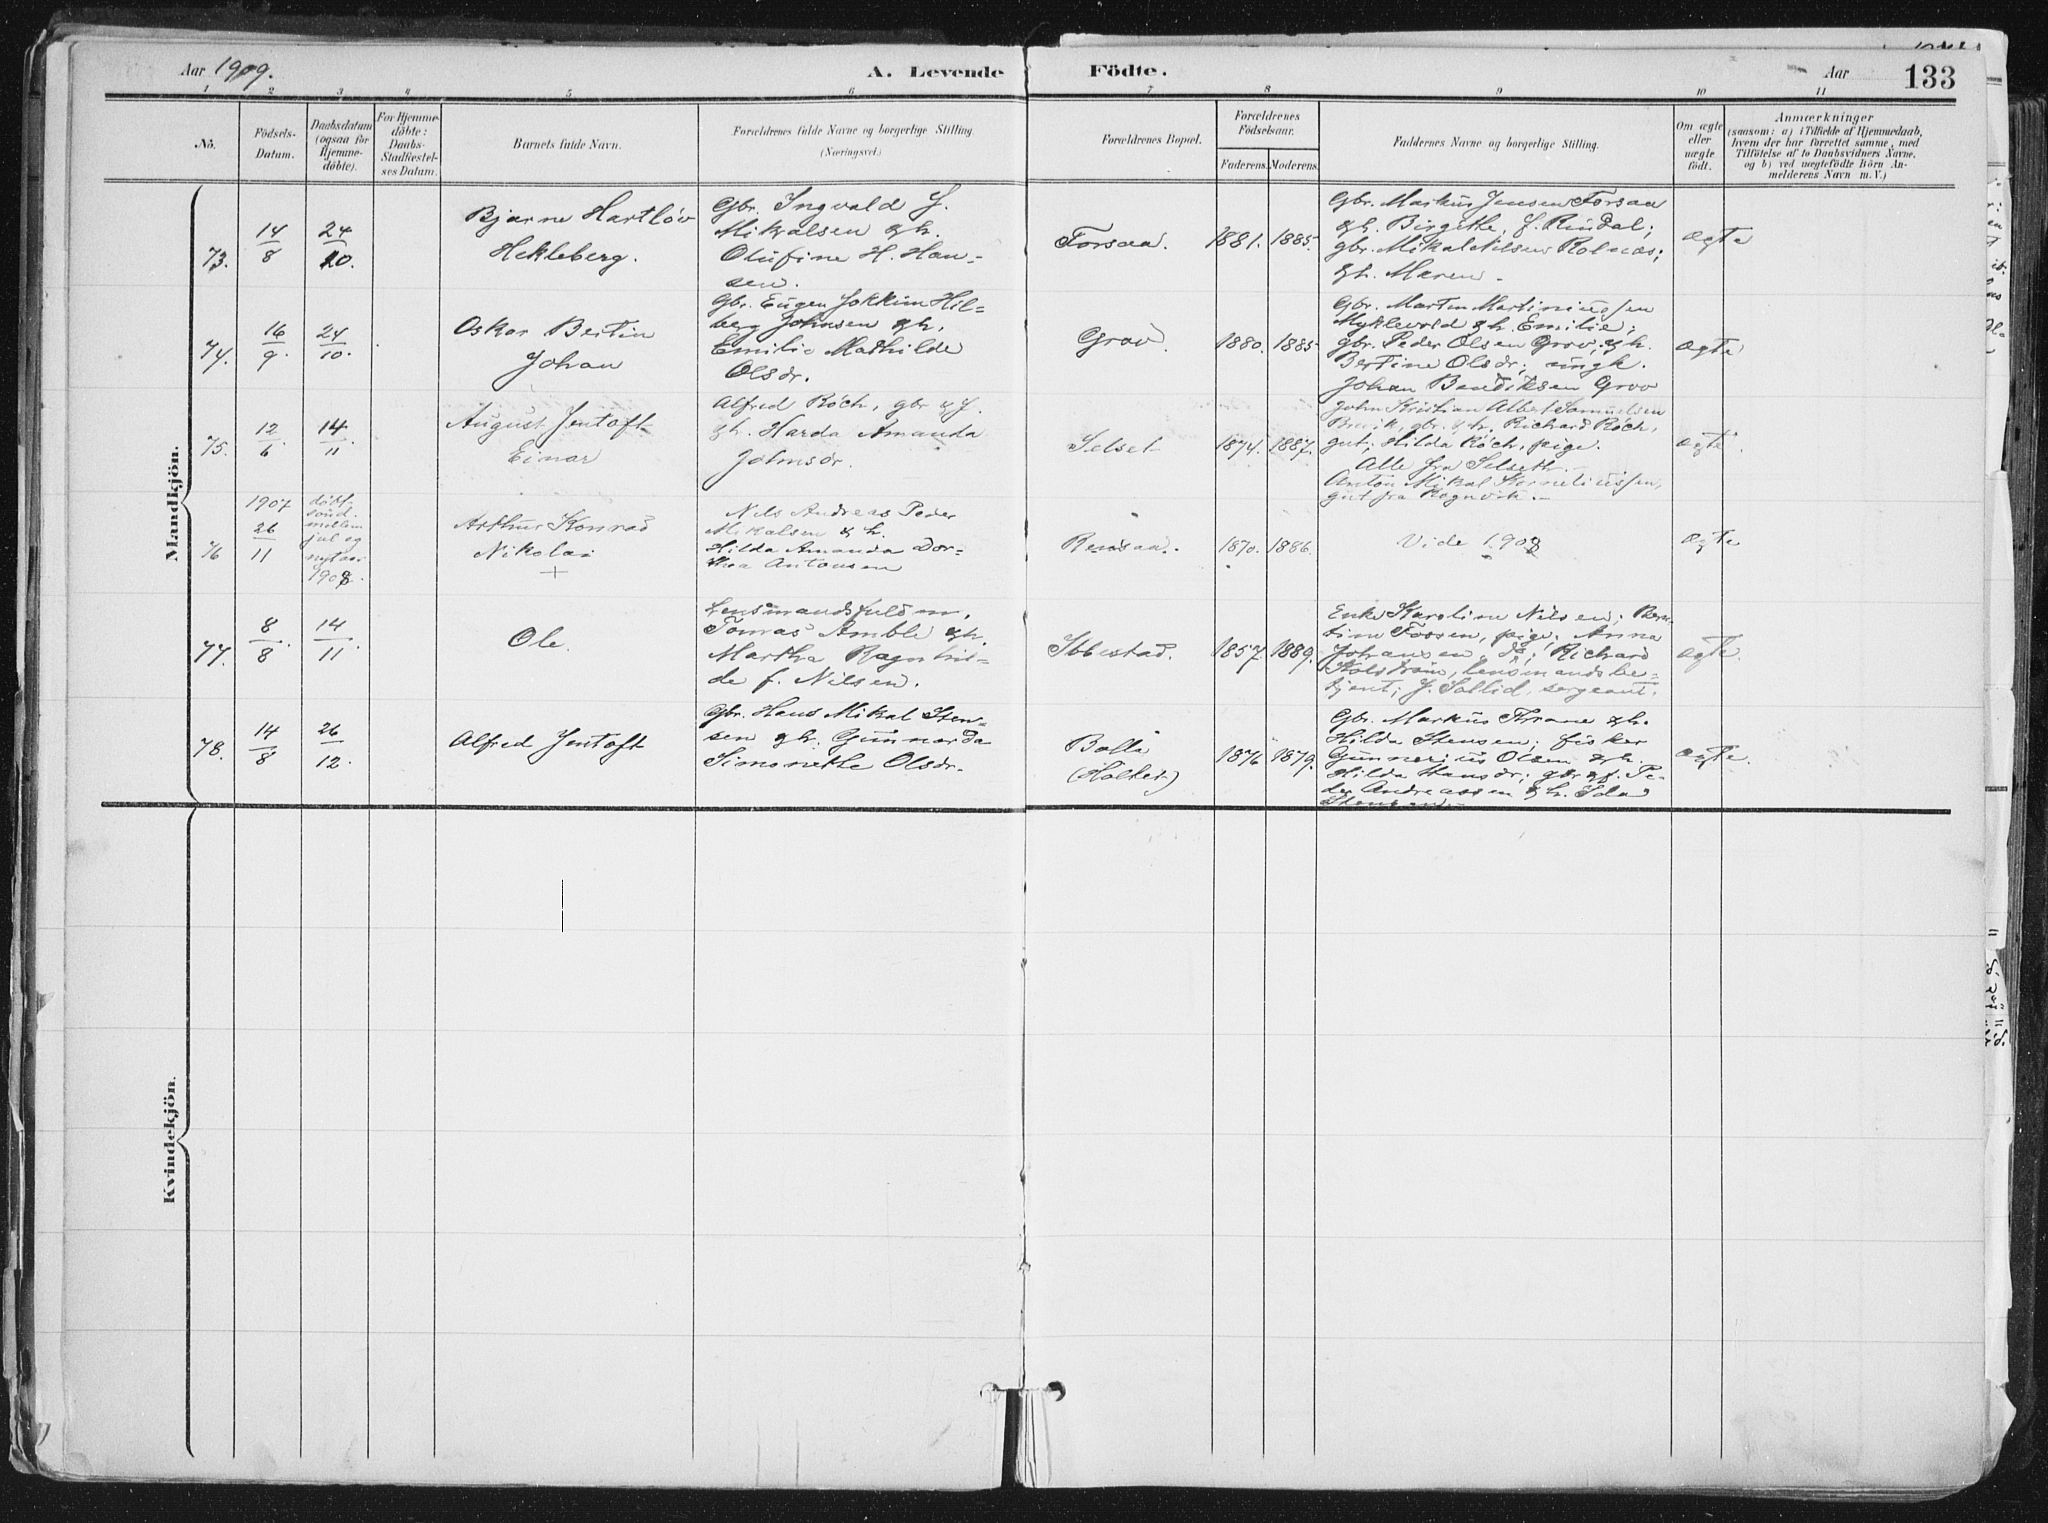 Aar 1909.
A. Levende Födte.
Aar
133
1 2 3 4 5 6 7 8 9 10 11
No.
Födsels-
Datum.
Daabsdatum
(ogsaa for
Hjemme-
döbte).
For Hjemme-
döbte:
Daabs-
Stadfæstel-
ses Datum.
Barnets fulde Navn.
Forældrenes fulde Navne og borgerlige Stilling.
(Næringsvei.)
Forældrenes Bopæl.
Forældrenes
Födselsaar.
Faderens. Moderens.
Faddernes Navne og borgerlige Stilling.
Om ægte
eller
uægte
födt.
Anmærkninger
(saasom: a) i Tilfælde af Hjemmedaab,
hvem der har forrettet samme, med
Tilföielse af to Daabsvidners Navne,
og b) ved uægtefödte Börn An-
melderens Navn m. V.)
Mandkjön.
73.
14/8
24/10.
Bjarne Hartløv
Hekleberg.
Gbr. Ingvald J.
Mikalsen & h.
Olufine H. Han-
sen.
Forsaa.
1881. 1885.
Gbr. Markus Jensen Forsaa
& h. Birgithe, f. Rindal;
gbr. Mikal Nilsen Rolnæs;
& h. Maren.
ægte
74.
16/9.
24/10.
Oskar Bertin
Johan
Gbr. Eugen Jokkim Hil-
berg Johnsen & h.
Emilie Mathilde
Olsdr.
Grov.
1880. 1885
Gbr. Martin Martinussen
Myklevold & h. Emilie;
gbr. Peder Olsen Grov, & h.
Bertine Olsdr; ungk.
Johan Bendiksen Grov
ægte
75.
12/6
14/11
August Jentoft
Einar
Alfred Röch, gbr & f.
& h. Harda Amanda
Johnsdr.
Selset
1874. 1887.
John Kristian Albert Samuelsen
Brevik, gbr. & h., Richard Röch,
gut; Hilda Röch, pige.
Alle fra Selseth.
Anton Mikal Korneliussen,
gut fra Rognvik.
ægte
76
1907
26/11
døbt
sønd.
mellem
jul og
nytaar
1908.
Arthur Konrad
Nikolai
+
Nils Andreas Peder
Mikalsen & h.
Hilda Amanda Dor-
thea Antonsen
Rensaa.
1870. 1886.
Vide 1908
ægte
77.
8/8
14/11
Ole.
Lensmandsfuldm.
Tomas Amble & h.
Martha Ragnhil-
de f. Nilsen.
Ibbestad.
1857. 1889.
Enke Karoline Nilsen; Ber-
tine Fossen, pige; Anna
Johansen, do; Richard
Kolstrøm, lensmandsbe-
tjent; J. Sollid, sergeant.
ægte.
78.
14/8
26/12.
Alfred Jentoft
Gbr. Hans Mikal Sten-
sen & h. Gunnarda
Simonethe Olsdr.
Bolla
(Holtet)
1876 1879.
Gbr. Markus Thrane & h.
Hilda Stensen; fisker
Gunnerius Olsen & h.
Hilda Hansdr; gbr & f. Pe-
der Andreassen & h. Ida
Stensen.
ægte.
Kvindekjön.